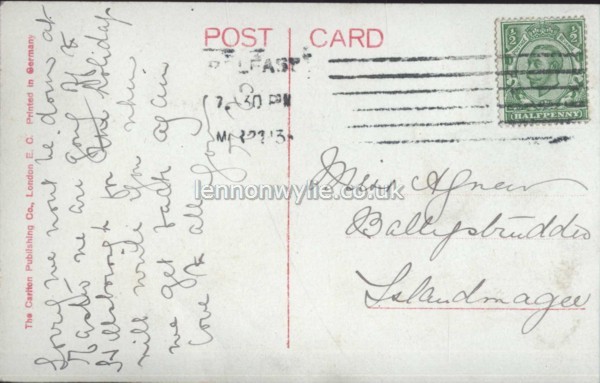 POST CARD
The Carlton Publishing Co., London E. C. Printed in Germany
Sorry we wont be down at
Easter we are going to
Hillsborough for the Holidays
will write you when
we get back again
love to all
BELFAST
7.30 PM
MR 22 13
½ ½
HALFPENNY
Miss Agnew
Ballystruddio
Islandmagee
lennonwylie.co.uk